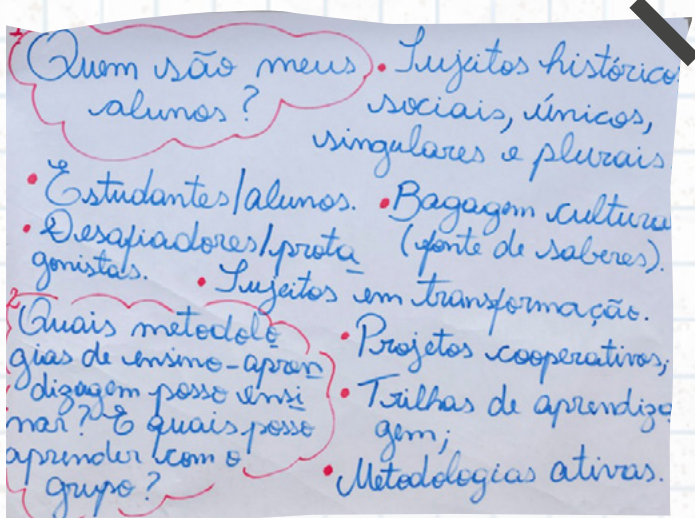 1
Quem são meus
alunos?
• Sujeitos histórico
sociais, únicos,
singulares e plurais
• Estudantes/alunos.
• Bagagem cultura
(fonte de saberes).
• Desafiadores/prota
gonistas.
• Sujeitos em transformação.
2
Quais metodolo
gias de ensino-apren
dizagem posso ensi
nar? E quais posso
aprender com o
grupo?
• Projetos cooperativos;
• Trilhas de aprendiza
gem;
• Metodologias ativas.